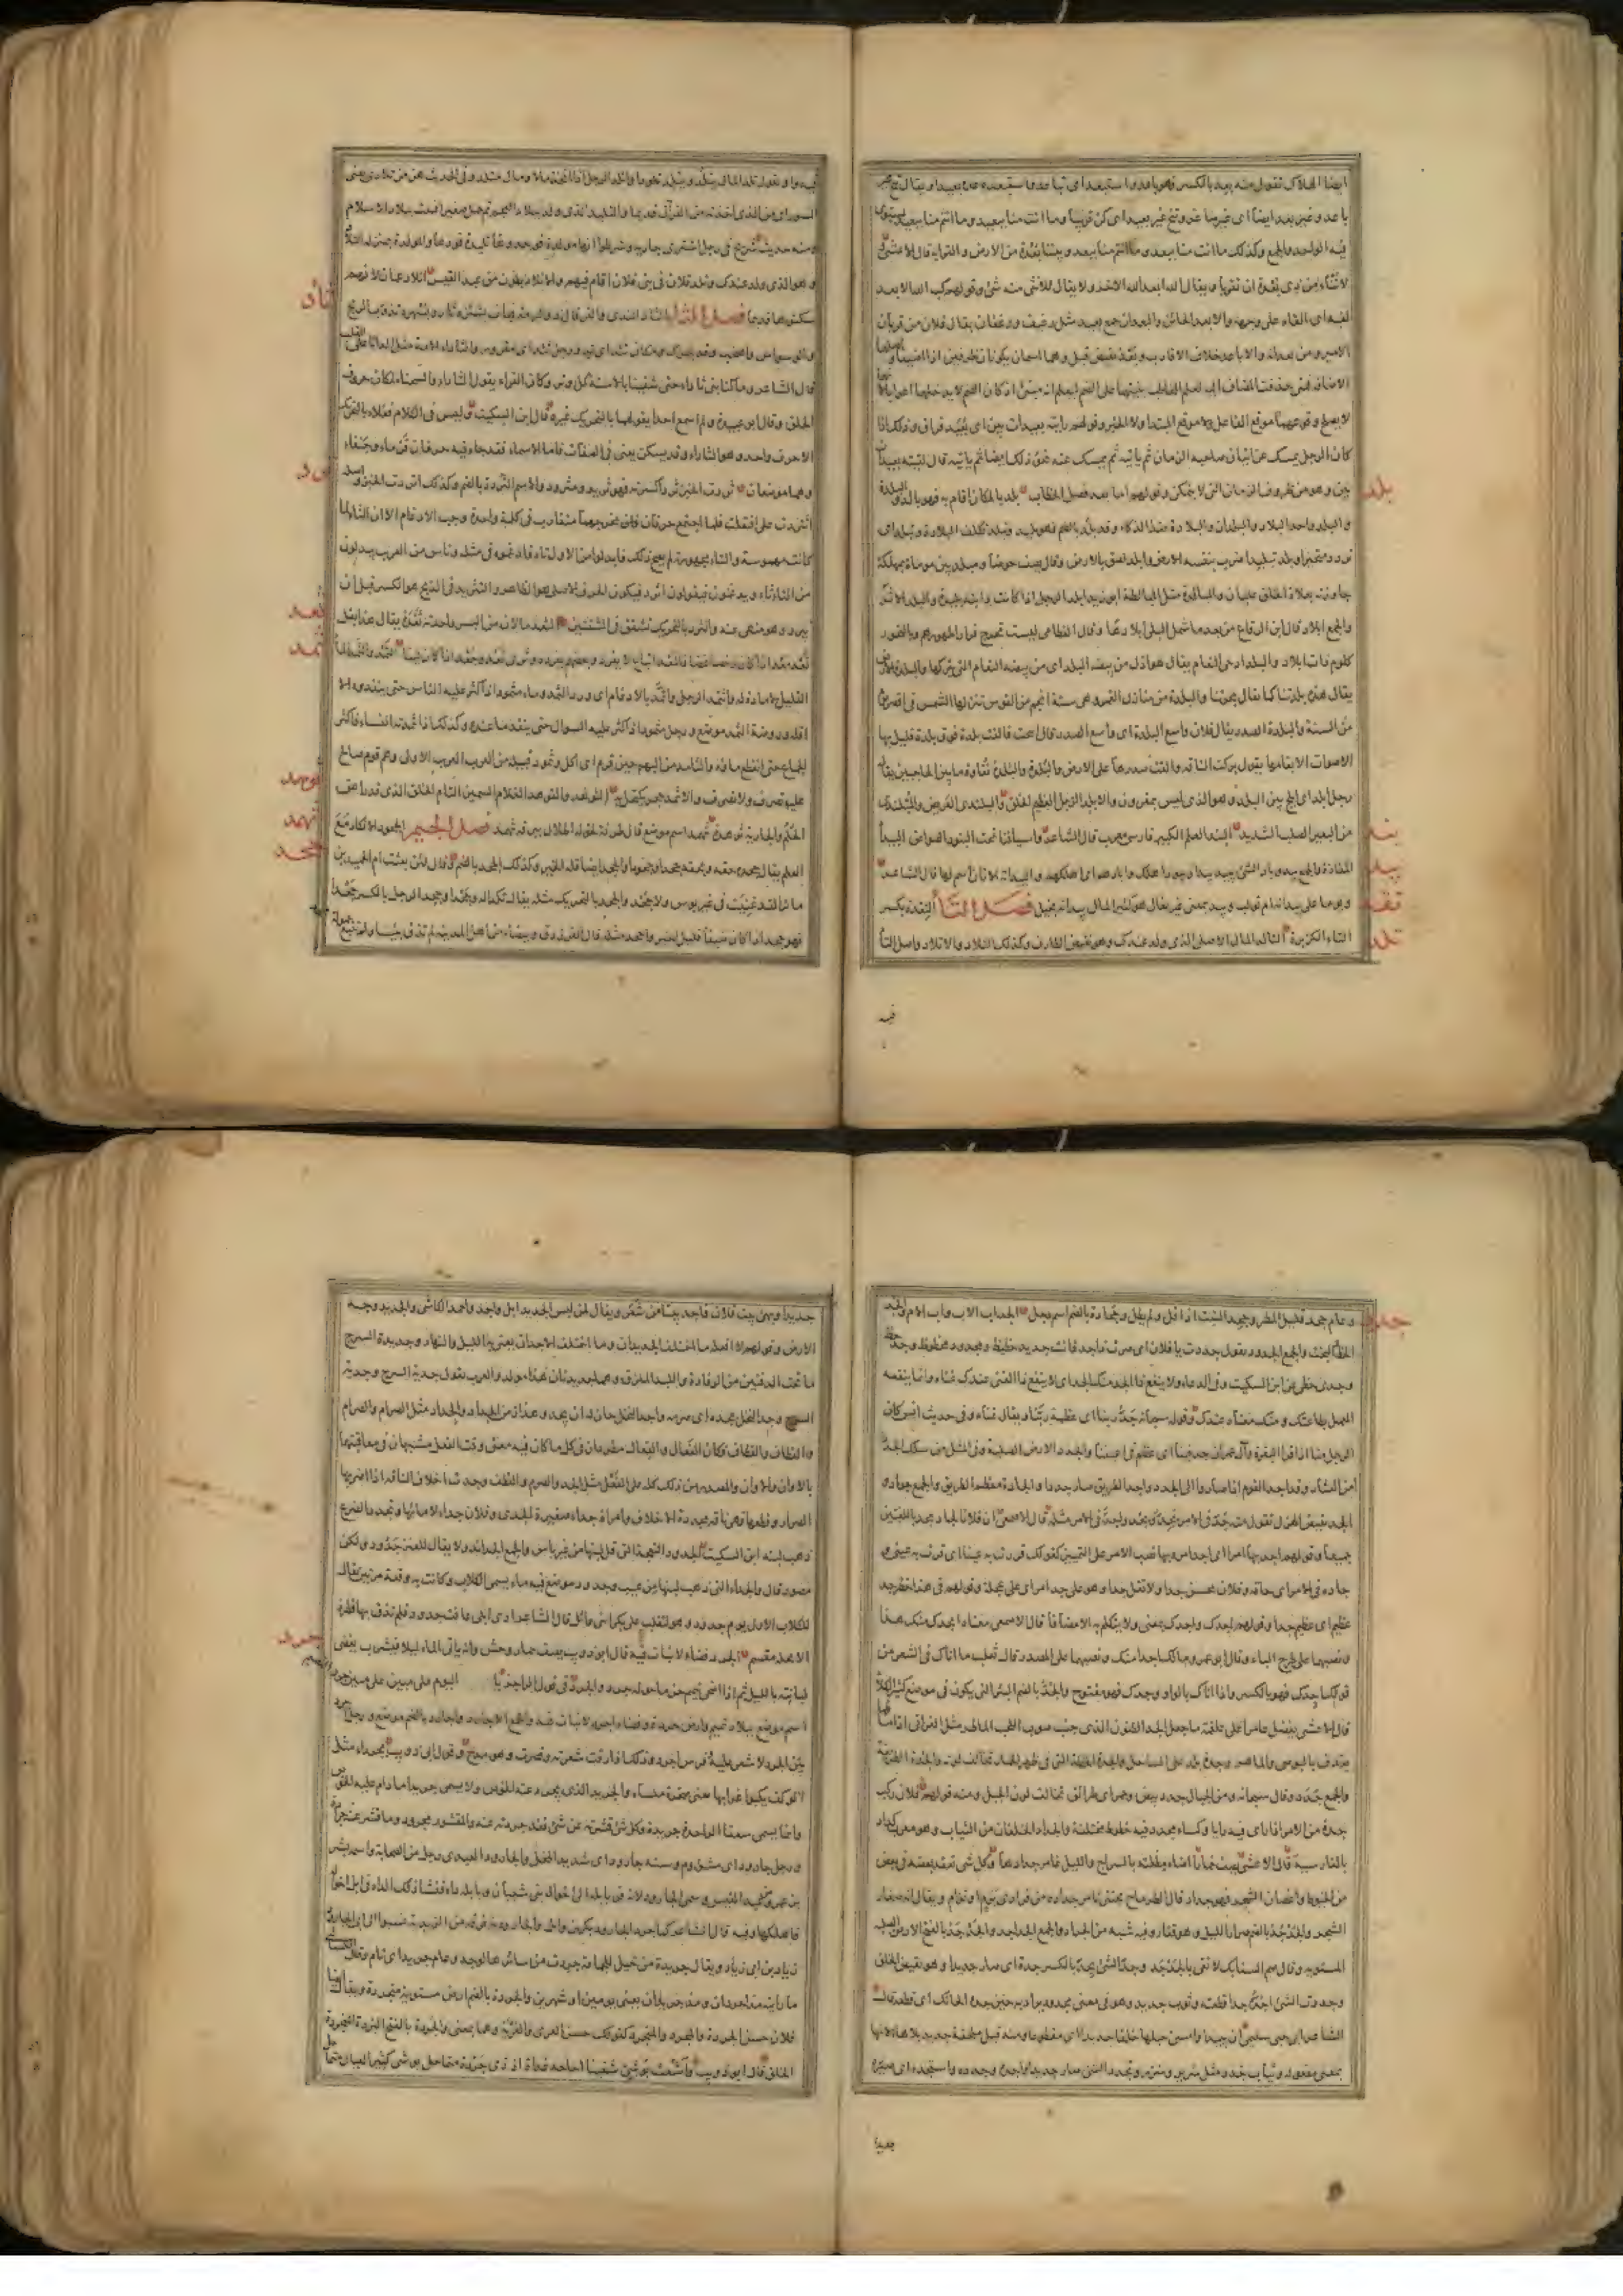 ايضا الهلاك تقول منه بعد بالكسر فهو باعد واستبعد اى تباعد واستبعده عده بعيدا ويقال تنح غير
باعد وغير بعد ايضا اى غير صاغر وتنح غير بعيد اى كن قريبا وما انت منا ببعيد وما انتم منا ببعيد يستوى
فيه الواحد والجمع وكذلك ما انت منا ببعد وما انتم منا ببعد وبيننا بعدة من الارض والقرابة قال الاعشى
لا تنأ من ذى بعدة ان تقربا ويقال ابعد الله الاخر ولا يقال للانثى منه شئ وقولهم كب الله الابعد
لفيه اى القاه على وجهه والابعد الخائن والبعدان جمع بعيد مثل رغيف ورغفان يقال فلان من قربان
الامير ومن بعدانه والاباعد خلاف الاقارب وبعد نقيض قبل وهما اسمان يكونان ظرفين اذا اضيفا واصلهما
الاضافة فمتى حذفت المضاف اليه لعلم المخاطب بنيتهما على الضم ليعلم انه مبنى اذ كان الضم لا يدخلهما اعرابا لانه
لا يصلح وقوعهما موقع الفاعل ولا موقع المبتدا ولا الخبر وقولهم رايته بعيدات بين اى بعيد فراق وذلك اذا
كان الرجل يمسك عن اتيان صاحبه الزمان ثم ياتيه ثم يمسك عنه نحو ذلك ايضا ثم ياتيه قال لقيته بعيدات
بين وهو من ظروف الزمان التى لا يتمكن وقولهم اما بعد فصل الخطاب بلد بالمكان اقام به فهو بالد والبلدة
والبلد واحد البلاد والبلدان والبلادة ضد الذكاء وقد بلد بالضم فهو بليد وتبلد تكلف البلادة وتبلد اى
تردد متحيرا وبلد تبليدا ضرب بنفسه الارض وابلد لصق بالارض وقال يصف حوضا ومبلد بين موماة بمهلكة
جاوزته بعلاة الخلق عليان والمبالدة مثل المبالطة ابو زيد ابلد الرجل اذا كانت دابته بليدة والبلد الاثر
والجمع ابلاد قال ابن الرقاع من بعد ما شمل البلى ابلادها وقال القطامى ليست تجرح فرارا ظهورهم وبالنحور
كلوم ذات ابلاد والبلد ادحى النعام يقال هو اذل من بيضة البلد اى من بيضة النعام التى يتركها والبلدة الارض
يقال هذه بلدتنا كما يقال بحرتنا والبلدة من منازل القمر وهى ستة انجم من القوس تنزلها الشمس فى اقصر يوم
من السنة والبلدة الصدر يقال فلان واسع البلدة اى واسع الصدر قال انيخت فالقت بلدة فوق بلدة قليل بها
الاصوات الا بغامها يقول بركت الناقة والقت صدرها على الارض والبلدة والبلدة نقاوة ما بين الحاجبين يقال
رجل ابلد اى ابلج بين البلد وهو الذى ليس بمقرون والابلد الرجل العظيم الخلق والبلندى العريض والمبلندى
من البعير الصلب الشديد البند العلم الكبير فارسى معرب قال الشاعر واسيافنا تحت البنود الصواعق البيداء
المفازة والجمع بيد وباد الشئ يبيد بيدا وبيودا هلك واباده الله اى اهلكهم والبيدانة الاتان اسم لها قال الشاعر
ويوما على بيدانة ام تولب وبيد بمعنى غير يقال هو كثير المال بيد انه بخيل فصل التاء التقدة بكسر
التاء الكزبرة التالد المال الاصلى الذى ولد عندك وهو نقيض الطارف وكذلك التلاد والاتلاد واصل التاء
فيه
بلد
بند
بيد
تقد
تلد
فيه واو تقول تلد المال يتلد ويتلد تلودا واتلد الرجل اذا اتخذ مالا ومال متلد وفى الحديث هن من تلادى يعنى
السور اى من الذى اخذته من القرآن قديما والتليد الذى ولد ببلاد العجم ثم حمل صغيرا فنبت ببلاد الاسلام
ومنه حديث شريح فى رجل اشترى جارية وشرطوا انها مولدة فوجدها تليدة فردها والمولدة بمنزلة التلاد
وهو الذى ولد عندك وتلد فلان فى بنى فلان اقام فيهم والاتلاد بطون من عبد القيس اتلاد عمان لانهم
سكنوها قديما فصل الثاء الثأد الندى والقر قال ذو الرمة فبات يشئزه ثأد ويسهره تذاوب الريح
والوسواس والهضب وقد يحرك ومكان ثئد اى ند ورجل ثئد اى مقرور والثأداء الامة مثل الدأثاء على القلب
قال الشاعر وما كنا بنى ثأداء حتى شفينا بالاسنة كل وتر وكان الفراء يقول الثأداء والسحناء لمكان حروف
الحلق وقال ابو عبيد ولم اسمع احدا يقولهما بالتحريك غيره قال ابن السكيت وليس فى الكلام فعلاء بالتحريك
الا حرف واحد وهو الثأداء وقد يسكن يعنى فى الصفات فاما الاسماء فقد جاء فيه حرفان قرماء وجنفاء
وهما موضعان ثردت الخبز ثردا كسرته فهو ثريد ومثرود والاسم الثردة بالضم وكذلك اثردت الخبز واصله
اثتردت على افتعلت فلما اجتمع حرفان فى مخرجهما متقارب فى كلمة واحدة وجب الادغام الا ان الثاء لما
كانت مهموسة والتاء مجهورة لم يصح ذلك فابدلوا من الاول تاء فادغموه فى مثله وناس من العرب يبدلون
من التاء ثاء ويدغمون فيقولون اثردت فيكون الحرف الاصلى هو الظاهر والتثريد فى الذبح هو الكسر قبل ان
يبرد وهو منهى عنه والثرد بالتحريك تشقق فى الشفتين الثعد ما لان من البسر واحدته ثعدة يقال هذا بقل
القليل لا مادة له واثتمد الرجل واثمد بالادغام اى ورد الثمد وماء مثمود اذا كثر عليه الناس حتى ينفدوه الا
اقله وروضة الثمد موضع ورجل مثمود اذا كثر عليه السؤال حتى ينفد ما عنده وكذلك اذا ثمدته النساء فاكثر
الجماع حتى انقطع ماؤه والثامد من البهم حين قرم اى اكل وثمود قبيلة من العرب الاولى وهم قوم صالح
عليه يصرف ولا يصرف والاثمد حجر يكتحل به الثوهد والفوهد الغلام السمين التام الخلق الذى قد راهق
الحلم والجارية ثوهدة ثهمد اسم موضع قال طرفة لخولة اطلال ببرقة ثهمد فصل الجيم الجحود الانكار مع
العلم يقال جحده حقه وبحقه جحدا وجحودا والجحد ايضا قلة الخير وكذلك الجحد بالضم وقال لئن بعثت ام الحميدين
مائرا لقد غنيت فى غير بؤس ولا جحد والجحد بالتحريك مثله يقال نكدا له وجحدا وجحد الرجل بالكسر جحدا
فهو جحد اذا كان ضيقا قليل الخير واجحد مثله قال الفرزدق وبيضاء من اهل المدينة لم تذق بئيسا ولم تتبع حمولة
ثأد
ثرد
ثعد
ثمد
ثوهد
ثهمد
جحد
وعام جحد قليل المطر وجحد النبت اذا قل ولم يطل وجحادة بالضم اسم رجل الجد اب الاب واب الام والجد
الحظ والبخت والجمع الجدود تقول جددت يا فلان اى صرت ذا جد فانت جديد حظيظ ومجدود محظوظ وجد حظ
وجدى حظى عن ابن السكيت وفى الدعاء ولا ينفع ذا الجد منك الجد اى لا ينفع ذا الغنى عندك غناه وانما ينفعه
العمل بطاعتك ومنك معناه عندك وقوله سبحانه جد ربنا اى عظمة ربنا ويقال غناه وفى حديث انس كان
الرجل منا اذا قرا البقرة وآل عمران جد فينا اى عظم فى اعيننا والجدد الارض الصلبة وفى المثل من سلك الجدد
امن العثار وقد اجد القوم اذا صاروا الى الجدد واجد الطريق صار جددا والجادة معظم الطريق والجمع جواد
الجد نقيض الهزل تقول منه جد فى الامر يجد ويجد واجد فى الامر مثله قال الاصمعى ان فلانا لجاد مجد باللغتين
جميعا وقولهم اجد بها امرا اى اجد امره بها نصب الامر على التمييز كقولك قررت به عينا اى قرت به عينى
جاده فى الامر اى حاقه وفلان محسن جدا ولا تقل جدا وهو على جد امر اى على عجلة وقولهم فى هذا خطر جد
عظيم اى عظيم جدا وقولهم اجدك واجدك بمعنى ولا يتكلم به الا مضافا قال الاصمعى معناه ابجد منك هذا
ونصبهما على طرح الباء وقال ابو عمرو مالك اجدا منك ونصبهما على المصدر قال ثعلب ما اتاك فى الشعر من
قولك اجدك فهو بالكسر واذا اتاك بالواو وجدك فهو مفتوح والجد بالضم البئر التى يكون فى موضع كثير الكلأ
قال الاعشى يفضل عامرا على علقمة ما جعل الجد الظنون الذى جنب صوب اللجب الماطر مثل الفراتى اذا ما طما
يقذف بالبوصى والماهر وجدة بلد على الساحل والجدة الخطة التى فى ظهر الحمار تخالف لونه والجدة الطريقة
والجمع جدد وقال سبحانه ومن الجبال جدد بيض وحمر اى طرائق تخالف لون الجبل ومنه قولهم فلان ركب
جدة من الامر اذا رأى فيه رأيا وكساء مجدد فيه خطوط مختلفة والجداد الخلقان من الثياب وهو معرب كداد
بالفارسية قال الاعشى يصف خمارا اضاء مظلته بالسراج والليل غامر جدادها وكل شئ تعقد بعضه فى بعض
من الخيوط واغصان الشجر فهو جداد قال الطرماح يجتنى ثامر جداده من فرادى برم او تؤام ويقال انه صغار
الشجر والجدجد بالضم صرار الليل وهو قفاز وفيه شبه من الجراد والجمع الجداجد والجدجد بالفتح الارض الصلبة
المستوية وقال صم السنابك لا تقى بالجدجد وجد الشئ يجد بالكسر جدة اى صار جديدا وهو نقيض الخلق
وجددت الشئ اجده جدا قطعته وثوب جديد وهو فى معنى مجدود يراد به حين جده الحائك اى قطعه قال
الشاعر ابى حبى سليمى ان يبيدا وامسى حبلها خلقا جديدا اى مقطوعا ومنه قيل ملحفة جديد بلا هاء لانها
بمعنى مفعولة وثياب جدد مثل سرير وسرر وتجدد الشئ صار جديدا واجده وجدده واستجده اى صيره
جديدا
جدد
جديدا وبهى بيت فلان فاجد بيتا من شعر ويقال لمن لبس الجديد ابل واجد واحمد الكاسى والجديد وجه
الارض وقولهم لا افعله ما اختلف الجديدان وما اختلف الاجدان يعنى به الليل والنهار وجديدة السرج
ما تحت الدفتين من الرفادة واللبد الملزق وهما جديدتان هذا مولد والعرب تقول جدية السرج وجدية
السرج وجد النخل يجده اى صرمه واجد النخل حان له ان يجد وهذا زمن الجداد والجداد مثل الصرام والصرام
والقطاف والقطاف فكان الفعال والفعال مطردان فى كل ما كان فيه معنى وقت الفعل مشبهان فى معاقبتهما
بالاوان والاوان والمصدر من ذلك كله على الفعل مثل الجد والصرم والقطف وجدت اخلاف الناقة اذا اضر بها
الصرار وقطعها فهى ناقة مجددة الاخلاف وامراة جداء صغيرة الثدى وفلاة جداء لا ماء بها وتجدد الضرع
ذهب لبنه ابن السكيت الجدود النعجة التى قل لبنها من غير بأس والجمع الجدائد ولا يقال للعنز جدود ولكن
مصور قال والجداء التى ذهب لبنها من عيب وجدود موضع فيه ماء يسمى الكلاب وكانت به وقعة مرتين يقال
للكلاب الاول يوم جدود وهو لتغلب على بكر بن وائل قال الشاعر ارى ابلى عافت جدود فلم تذق بها قطرة
الا تحلة مقسم الجرد فضاء لا نبات فيه قال ابو ذويب يصف حمار وحش وانه ياتى الماء ليلا فيشرب يقضى
لبانته بالليل ثم اذا اضحى تيمم حزما حوله جرد والجرد فى قول الراجز يا اليوم على مبين على مبين جرد القصيم
اسم موضع ببلاد تميم وارض جردة وفضاء اجرد لا نبات فيه والجمع الاجارد وجراد بالضم موضع ورجل اجرد
بين الجرد لا شعر عليه وفرس اجرد وذلك اذا رقت شعرته وقصرت وهو مدح وقول ابى ذويب بجرداء مثل
الوكف يكبو غرابها يعنى صخرة ملساء والجريد الذى يجرد عنه الخوص ولا يسمى جريدا ما دام عليه الخوص
وانما يسمى سعفا الواحدة جريدة وكل شئ قشرته عن شئ فقد جردته عنه والمقشور مجرود وما قشر عنه جرادة
ورجل جارود اى مشؤوم وسنة جارود اى شديدة المحل والجارود العبدى رجل من الصحابة واسمه بشر
بن عمرو من عبد القيس وسمى الجارود لانه فر بابله الى اخواله بنى شيبان وبابله داء ففشا ذلك الداء فى ابل اخواله
فاهلكها وفيه قال الشاعر كما جرد الجارود بكر بن وائل والجارودية فرقة من الزيدية نسبوا الى ابى الجارود
زياد بن ابى زياد ويقال جريدة من خيل لجماعة جردت من سائرها لوجه وعام جريد اى تام وقال الكسائى
ما رايته مذ اجردان ومذ جريدان يعنى يومين او شهرين والجردة بالضم ارض مستوية متجردة ويقال ايضا
فلان حسن الجردة والمجرد والمتجرد كقولك حسن العرية والمعرى وهما بمعنى والجردة بالفتح البردة المنجردة
الخلق قال ابو ذويب واشعث بوشى شفينا احاحه غداة اذ ذى جردة متماحل بوشى كثير العيال متماحل
جرد